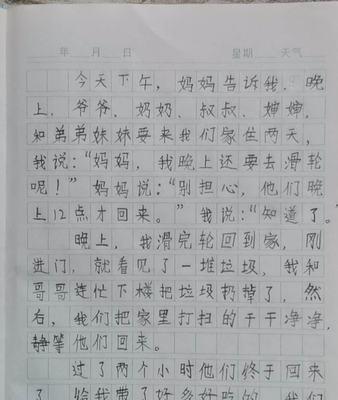 年 月 日 星期 天气
今天下午，妈妈告诉我，晚
上，爷爷、奶奶、叔叔、婶婶，
和弟弟妹妹要来我们家住两天，
我说：“妈妈，我晚上还要去滑轮
呢！”妈妈说：“别担心，他们晚
上12点才回来。”我说：“知道了。”
晚上，我滑完轮回到家，刚
进门，就看见了一堆垃圾，我和
哥哥连忙下楼把垃圾扔掉了，然
右，我们把家里打扫的干干净净，
静等他们回来。
过了两个小时他们终于回来
了，给我带了好多好吃的，我们